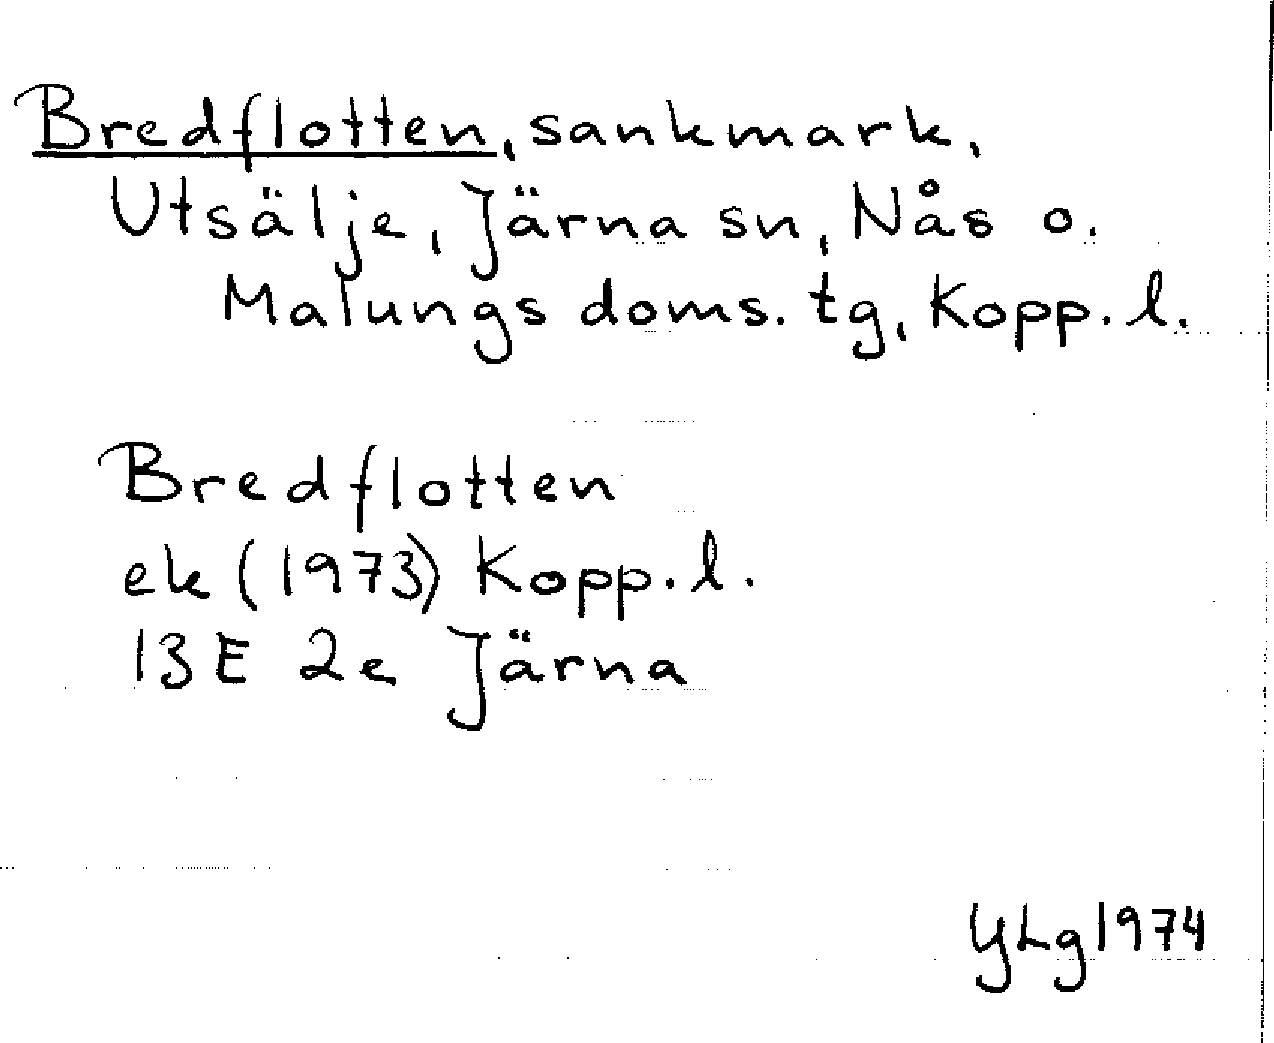 Bredflotten, sankmark,
Utsälje, Järna sn, Nås o.
Malungs doms. tg, Kopp. l.
Bredflotten
ek (1973) Kopp. l.
13E 2e Järna
YLg 1974